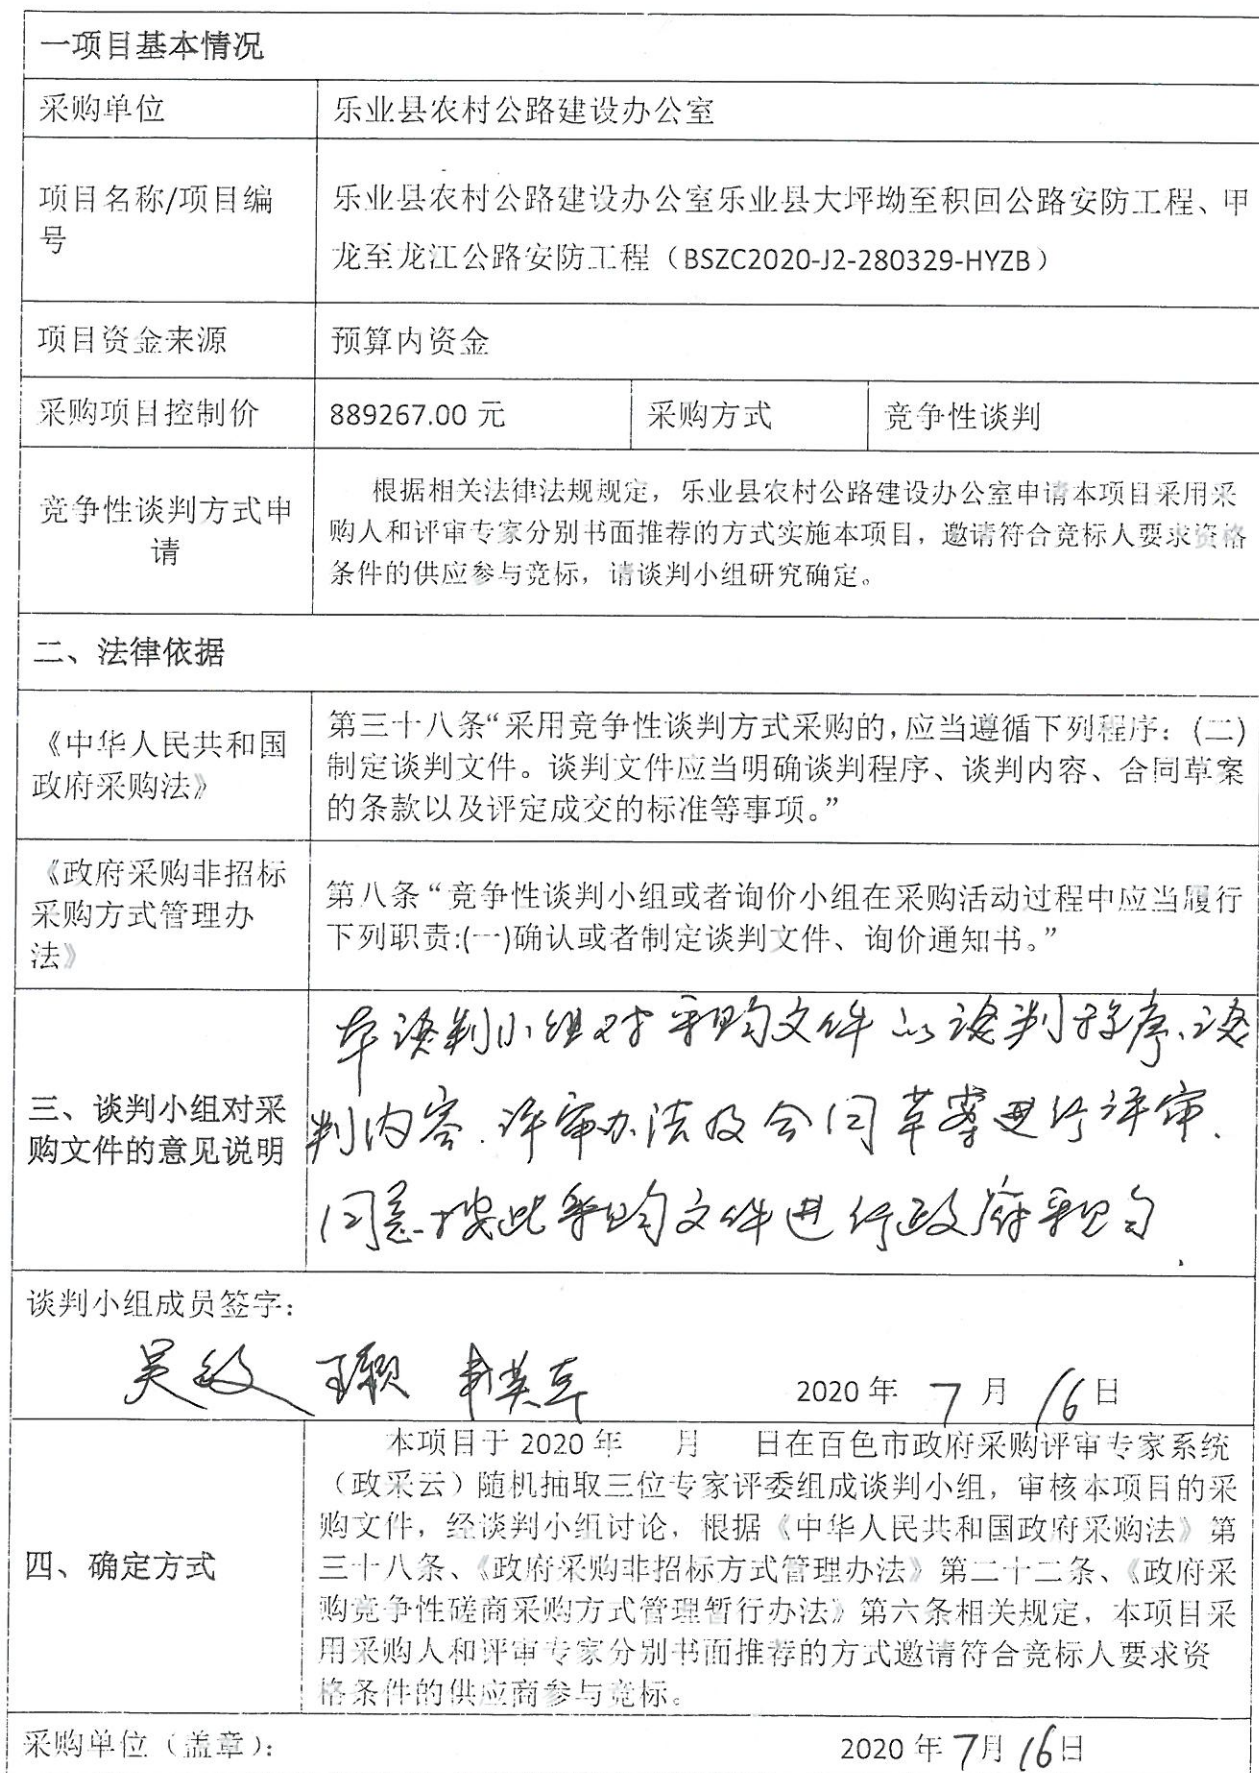 一项目基本情况
采购单位
乐业县农村公路建设办公室
项目名称/项目编
号
乐业县农村公路建设办公室乐业县大坪坳至积回公路安防工程、甲
龙至龙江公路安防工程（BSZC2020-J2-280329-HYZB）
项目资金来源
预算内资金
采购项目控制价
889267.00 元
采购方式
竞争性谈判
竞争性谈判方式申
请
根据相关法律法规规定，乐业县农村公路建设办公室申请本项目采用采
购人和评审专家分别书面推荐的方式实施本项目，邀请符合竞标人要求资格
条件的供应参与竞标，请谈判小组研究确定。
二、法律依据
《中华人民共和国
政府采购法》
第三十八条“采用竞争性谈判方式采购的，应当遵循下列程序：(二)
制定谈判文件。谈判文件应当明确谈判程序、谈判内容、合同草案
的条款以及评定成交的标准等事项。”
《政府采购非招标
采购方式管理办
法》
第八条“竞争性谈判小组或者询价小组在采购活动过程中应当履行
下列职责:(一)确认或者制定谈判文件、询价通知书。”
三、谈判小组对采
购文件的意见说明
本谈判小组对采购文件的谈判程序、谈
判内容、评审办法及合同草案进行评审，
同意按此采购文件进行政府采购。
谈判小组成员签字：
吴敏 王颖
2020 年 7 月 16 日
四、确定方式
本项目于 2020 年 月 日在百色市政府采购评审专家系统
（政采云）随机抽取三位专家评委组成谈判小组，审核本项目的采
购文件，经谈判小组讨论，根据《中华人民共和国政府采购法》第
三十八条、《政府采购非招标方式管理办法》第二十二条、《政府采
购竞争性磋商采购方式管理暂行办法》第六条相关规定，本项目采
用采购人和评审专家分别书面推荐的方式邀请符合竞标人要求资
格条件的供应商参与竞标。
采购单位（盖章）：
2020 年 7 月 16 日